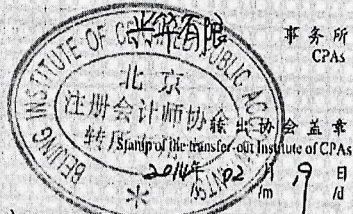 兴华有限 事务所
CPAs
BEIJING INSTITUTE OF CERTIFIED PUBLIC ACCOUNTANTS
北京
注册会计师协会
转所专用
转出协会盖章
Stamp of the transfer-out Institute of CPAs
2014年02月19日
/m /d